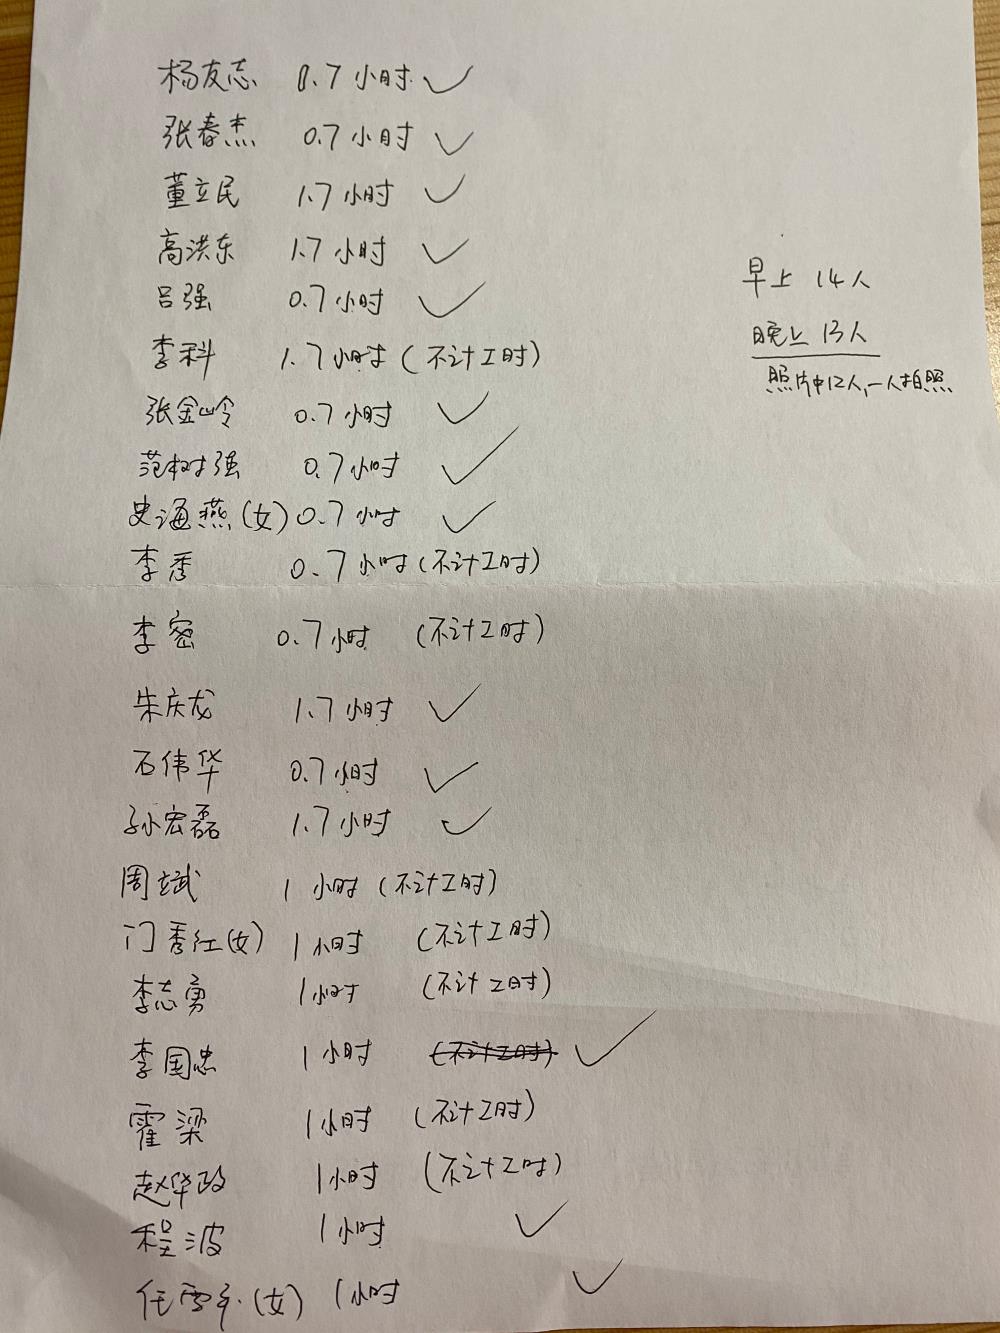 杨友志 0.7小时 ✓
张春杰 0.7小时 ✓
董立民 1.7小时 ✓
高洪东 1.7小时 ✓
吕强 0.7小时 ✓
李科 1.7小时(不计工时)
张金岭 0.7小时 ✓
范树强 0.7小时 ✓
史海燕(女) 0.7小时 ✓
李秀 0.7小时(不计工时)
李密 0.7小时 (不计工时)
朱庆龙 1.7小时 ✓
石伟华 0.7小时 ✓
孙宏磊 1.7小时 ✓
周斌 1小时(不计工时)
门秀红(女) 1小时 (不计工时)
李志勇 1小时 (不计工时)
李国忠 1小时 (不计工时) ✓
霍梁 1小时 (不计工时)
赵华政 1小时 (不计工时)
程波 1小时 ✓
任雪(女) 1小时 ✓
早上 14人
晚上 13人
照片中12人,一人拍照